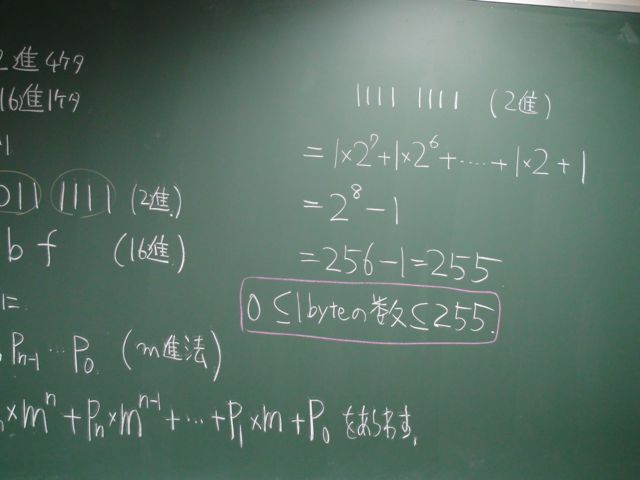 2進4ケタ
16進1ケタ
011 1111 (2進)
b f (16進)
Pn-1 … P0 (m進法)
×m^n + Pn×m^n-1 + … + P1×m + P0 をあらわす.
1111 1111 (2進)
= 1×2^7+1×2^6+……+1×2+1
= 2^8 - 1
= 256-1=255
0≦1byteの数≦255.